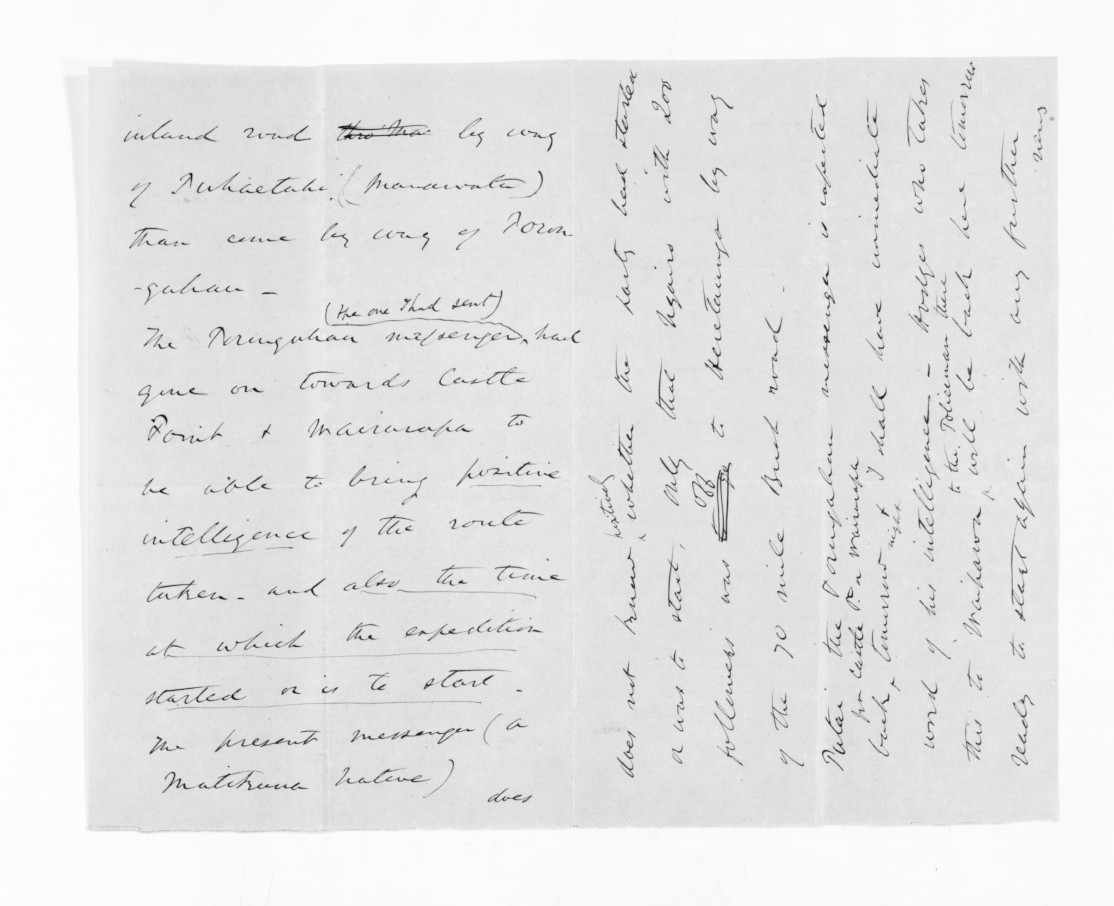 inland road thro' Ma by way
of Puhaetahi (Manawatu)
than come by way of Poron-
-gahau -
(the one I had sent)
The Porungahau messenger had
gone on towards Castle
Point & Wairarapa to
be able to bring positive
intelligence of the route
taken - and also the time
at which the expedition
started or is to start -
The present messenger (a
Matikuna Native)
does
does not know positively whether the party had started
or was to start, only that Ngairo with 200
followers was off to Heretaunga by way
of the 70 mile Bush road -
Patai the Porungahau messenger is expected
for Castle Pt & Wairarapa
back tomorrow night & I shall have immediate
word of his intelligence - Hodges who takes
this to Waipawa to the Policeman there will be back here tomorrow
ready to start again with any further
news